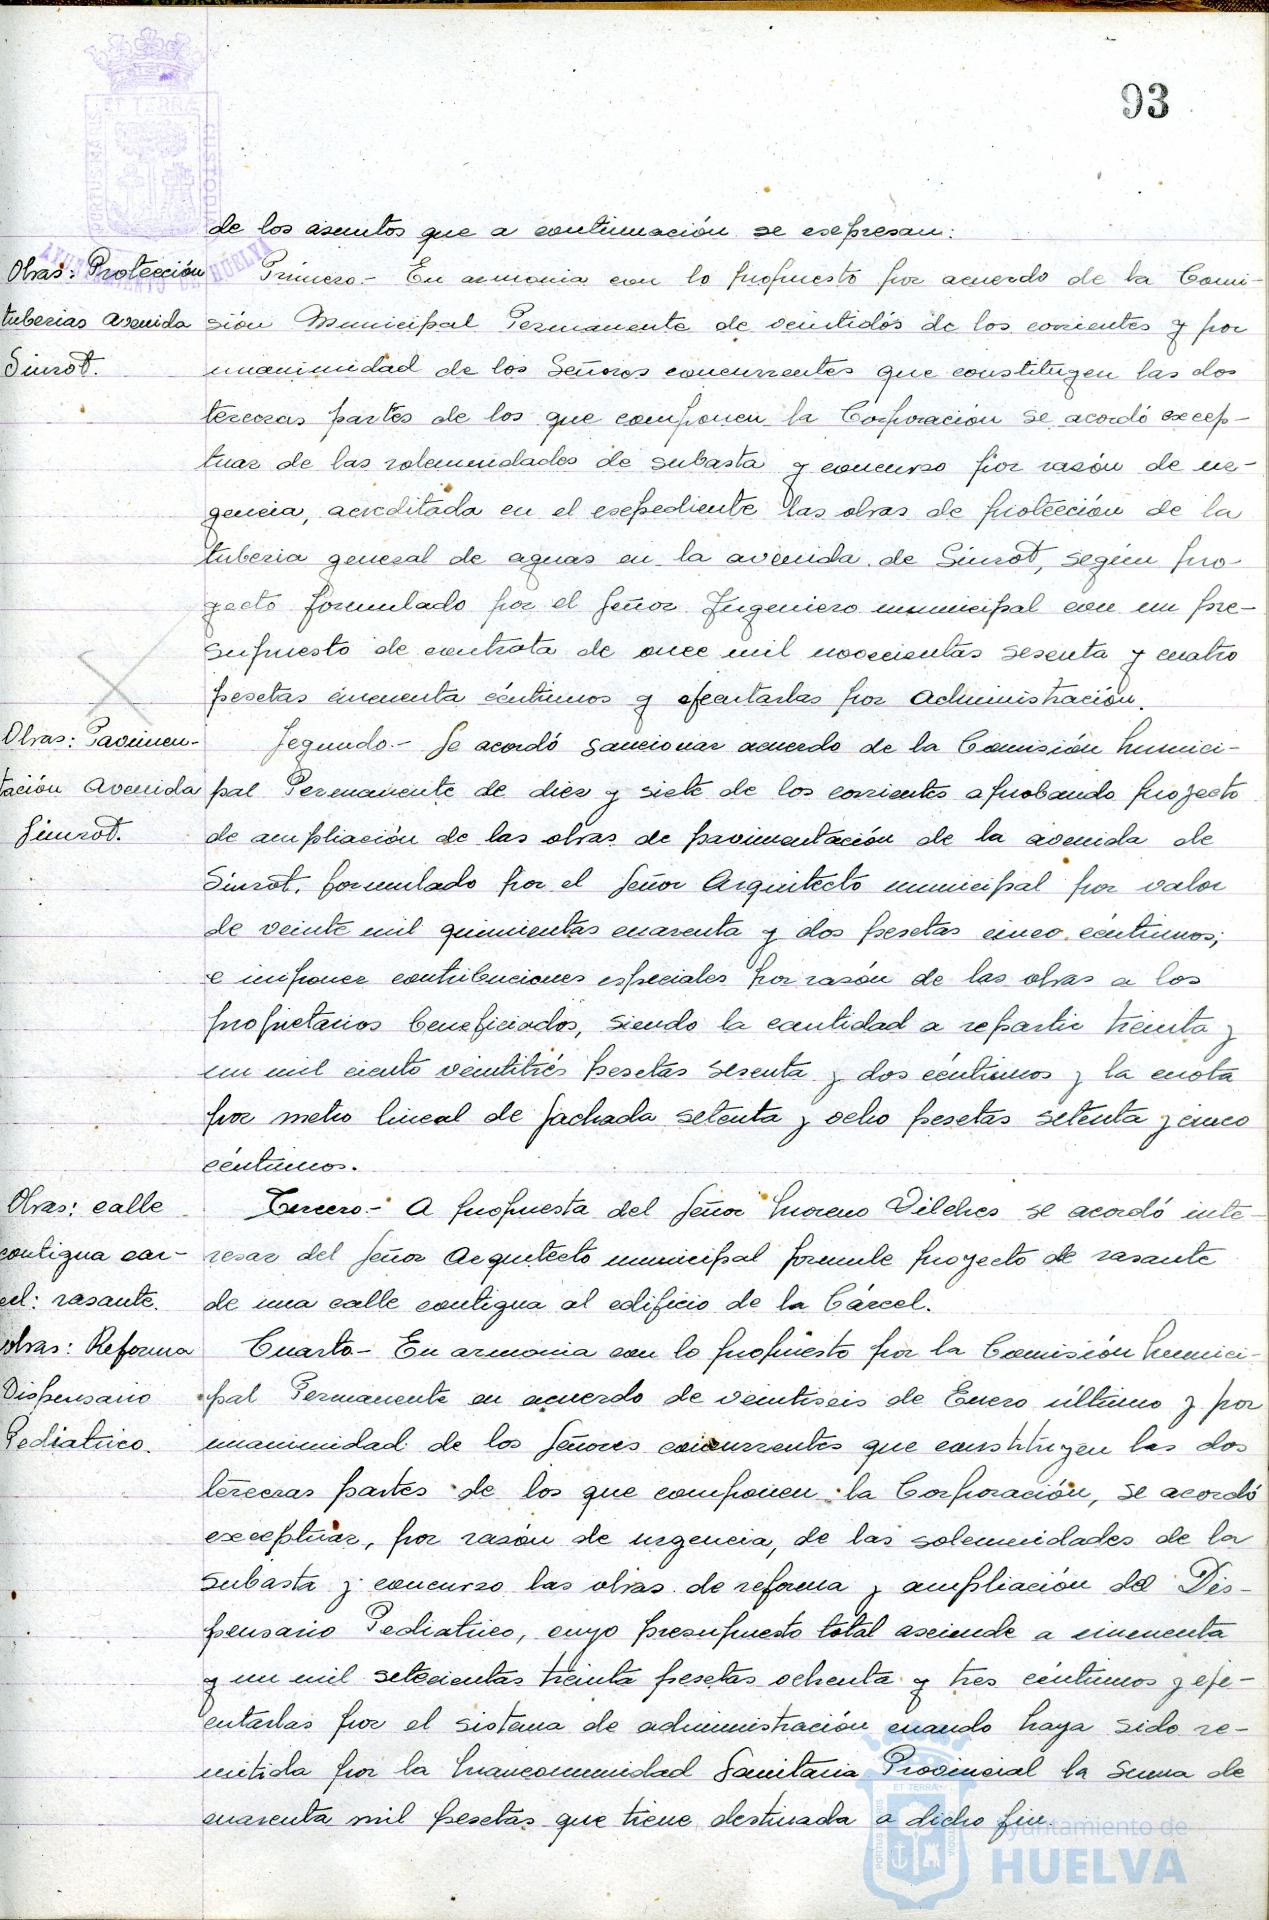 93
PORTUS MARIS ET TERRAE CUSTODIA
AYUNTAMIENTO DE HUELVA
de los asuntos que a continuación se expresan:
Obras: Protección
tuberias Avenida
Siurot.
Primero.- En armonia con lo propuesto por acuerdo de la Comi-
sión Municipal Permanente de veintidós de los corrientes y por
unanimidad de los Señores concurrentes que constituyen las dos
terceras partes de los que componen la Corporación se acordó excep-
tuar de las solemnidades de subasta y concurso por razón de ur-
gencia, acreditada en el expediente las obras de protección de la
tuberia general de aguas en la avenida de Siurot, según pro-
yecto formulado por el Señor Ingeniero municipal con un pre-
supuesto de contrata de once mil novecientas sesenta y cuatro
pesetas cincuenta céntimos y ejecutarlas por administración.
Obras: Pavimen-
tación Avenida
Siurot.
Segundo.- Se acordó sancionar acuerdo de la Comisión Munici-
pal Permanente de diez y siete de los corrientes aprobando proyecto
de ampliación de las obras de pavimentación de la avenida de
Siurot, formulado por el Señor Arquitecto municipal por valor
de veinte mil quinientas cuarenta y dos pesetas cinco céntimos;
e imponer contribuciones especiales por razón de las obras a los
propietarios beneficiados, siendo la cantidad a repartir treinta y
un mil ciento veintitrés pesetas sesenta y dos céntimos y la cuota
por metro lineal de fachada setenta y ocho pesetas setenta y cinco
céntimos.
Obras: calle
contigua car-
cel: rasante.
Tercero.- A propuesta del Señor Moreno Vilches se acordó inte-
resar del Señor Arquitecto municipal formule proyecto de rasante
de una calle contigua al edificio de la Cárcel.
obras: Reforma
Dispensario
Pediatrico.
Cuarto.- En armonia con lo propuesto por la Comisión Munici-
pal Permanente en acuerdo de veintiseis de Enero último y por
unanimidad de los Señores concurrentes que constituyen las dos
terceras partes de los que componen la Corporación, se acordó
exceptuar, por razón de urgencia, de las solemnidades de la
subasta y concurso las obras de reforma y ampliación del Dis-
pensario Pediatrico, cuyo presupuesto total asciende a cincuenta
y un mil setecientas treinta pesetas ochenta y tres céntimos y eje-
cutarlas por el sistema de administración cuando haya sido re-
mitida por la Mancomunidad Sanitaria Provincial la suma de
cuarenta mil pesetas que tiene destinada a dicho fin.
Ayuntamiento de
HUELVA